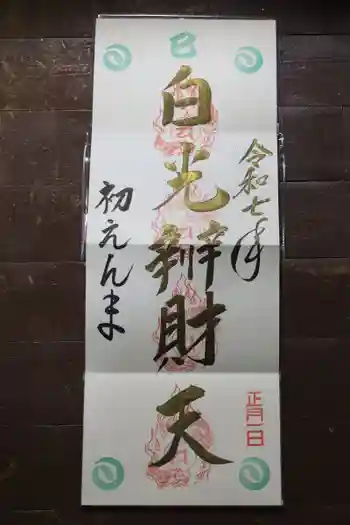 巳
令和七年
白光辯財天
初えんま
正月一日